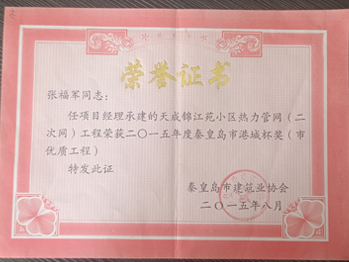 荣誉证书
张福军同志：
任项目经理承建的天成锦江苑小区热力管网（二
次网）工程荣获二〇一五年度秦皇岛市港城杯奖（市
优质工程）
特发此证
秦皇岛市建筑业协会
二〇一五年八月